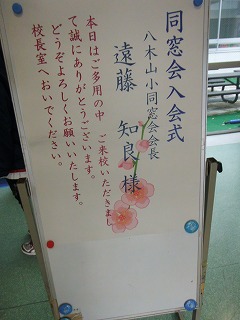 同窓会入会式
八木山小同窓会会長
遠藤 知良 様
本日はご多用の中 ご来校いただきまし
て誠にありがとうございます。
どうぞよろしくお願いいたします。
校長室へおいでください。